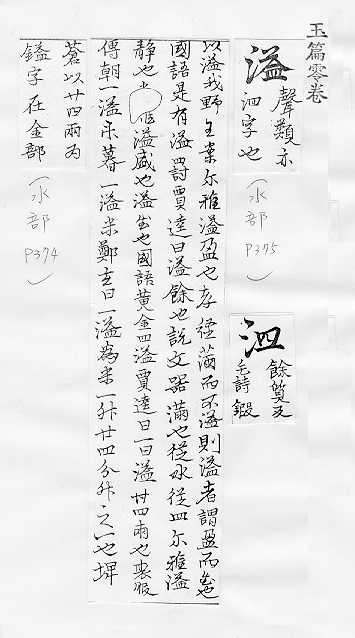 玉篇零卷
溢 聲類亦
泗字也
(水部 P375)
泗 餘質反
毛詩 鍛
以溢我野王案尔雅溢盈也孝經滿而不溢則溢者謂盈而出也
國語是有溢罸賈逵曰溢餘也說文器滿也從水從皿尔雅溢
静也 溢盛也溢出也國語黄金四溢賈逵曰一曰溢廿四兩也喪服
傳朝一溢米暮一溢米鄭玄曰一溢為米一升廿四分升之一也埤
蒼以廿四兩為
鎰字在金部
(水部 P374)